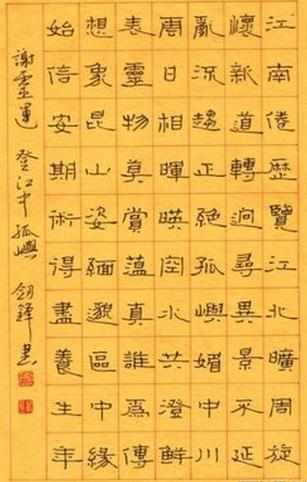 江南倦歷覽江北曠周旋
懷新道轉迥尋異景不延
亂流趨正絕孤嶼媚中川
日相暉暎空水共澄鮮
表靈物莫賞蘊真誰為傳
想象昆山姿緬邈區中緣
始信安期術得盡養生年
謝靈運 登江中孤嶼 書